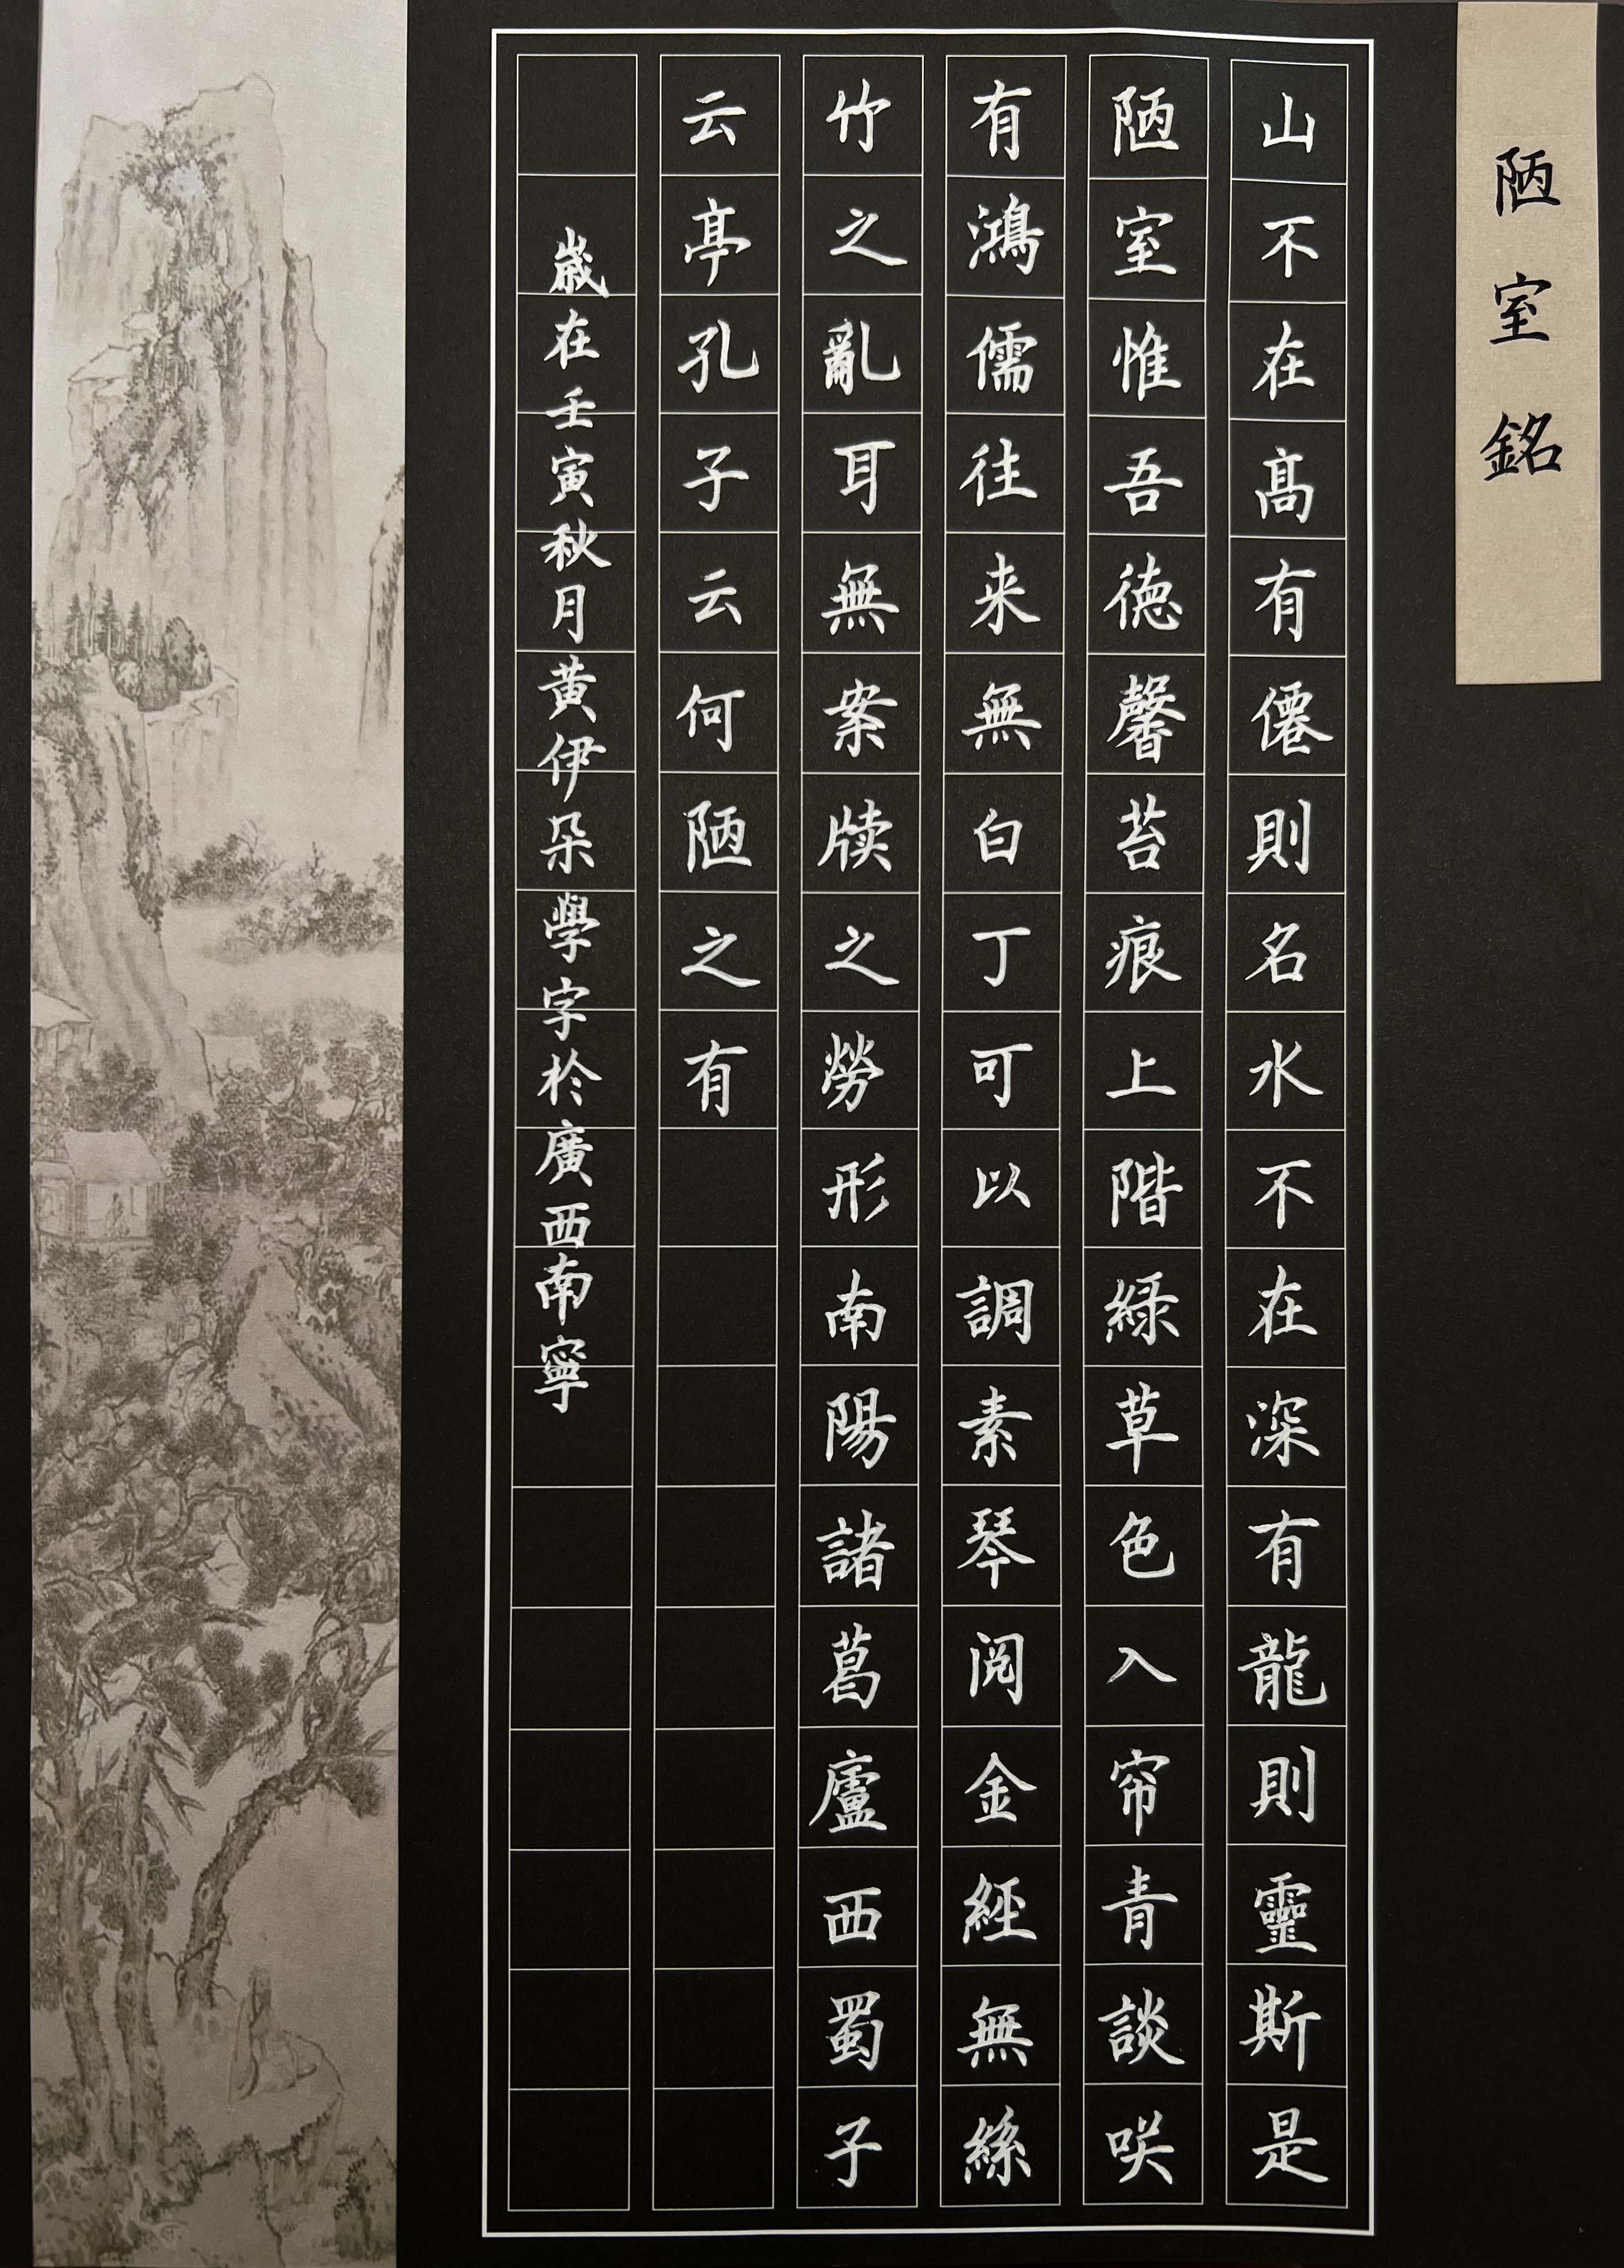 陋室銘
山不在高有僊則名水不在深有龍則靈斯是
陋室惟吾德馨苔痕上階綠草色入帘青談咲
有鴻儒往来無白丁可以調素琴閱金經無絲
竹之亂耳無案牍之勞形南陽諸葛廬西蜀子
云亭孔子云何陋之有
歲在壬寅秋月黃伊朵學字於廣西南寧